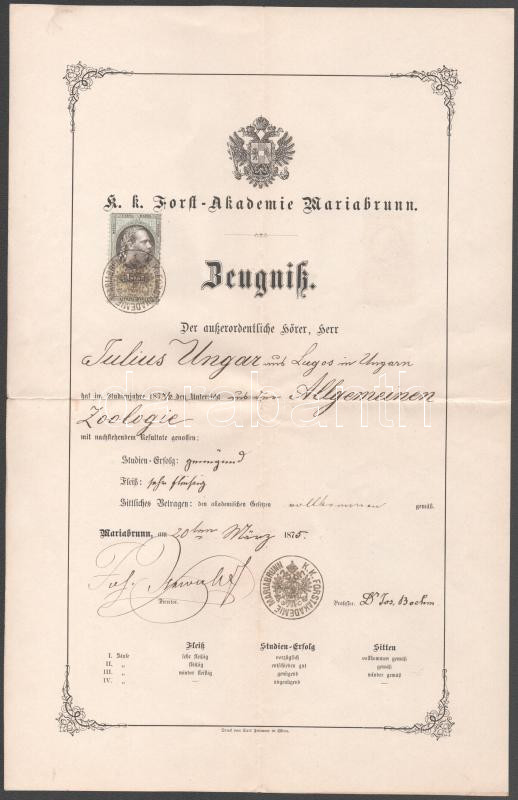 K. k. Forst-Akademie Mariabrunn.
Zeugniß.
Der außerordentliche Hörer, Herr
Julius Ungar aus Lugos in Ungarn
hat im Studienjahre 187 den Unterricht aus der Allgemeinen
Zoologie
mit nachstehendem Resultate genossen:
Studien-Erfolg: genügend
Fleiß: sehr fleißig
Sittliches Betragen: den akademischen Gesetzen vollkommen gemäß.
Mariabrunn, am 20ten März 1875.
K.K. FORSTAKADEMIE MARIABRUNN
Director. Professor. Dr Jos. Boehm
Fleiß Studien-Erfolg Sitten
I. Stufe sehr fleißig vorzüglich vollkommen gemäß
II. „ fleißig entschieden gut gemäß
III. „ minder fleißig genügend minder gemäß
IV. „ — ungenügend —
darabanth.com